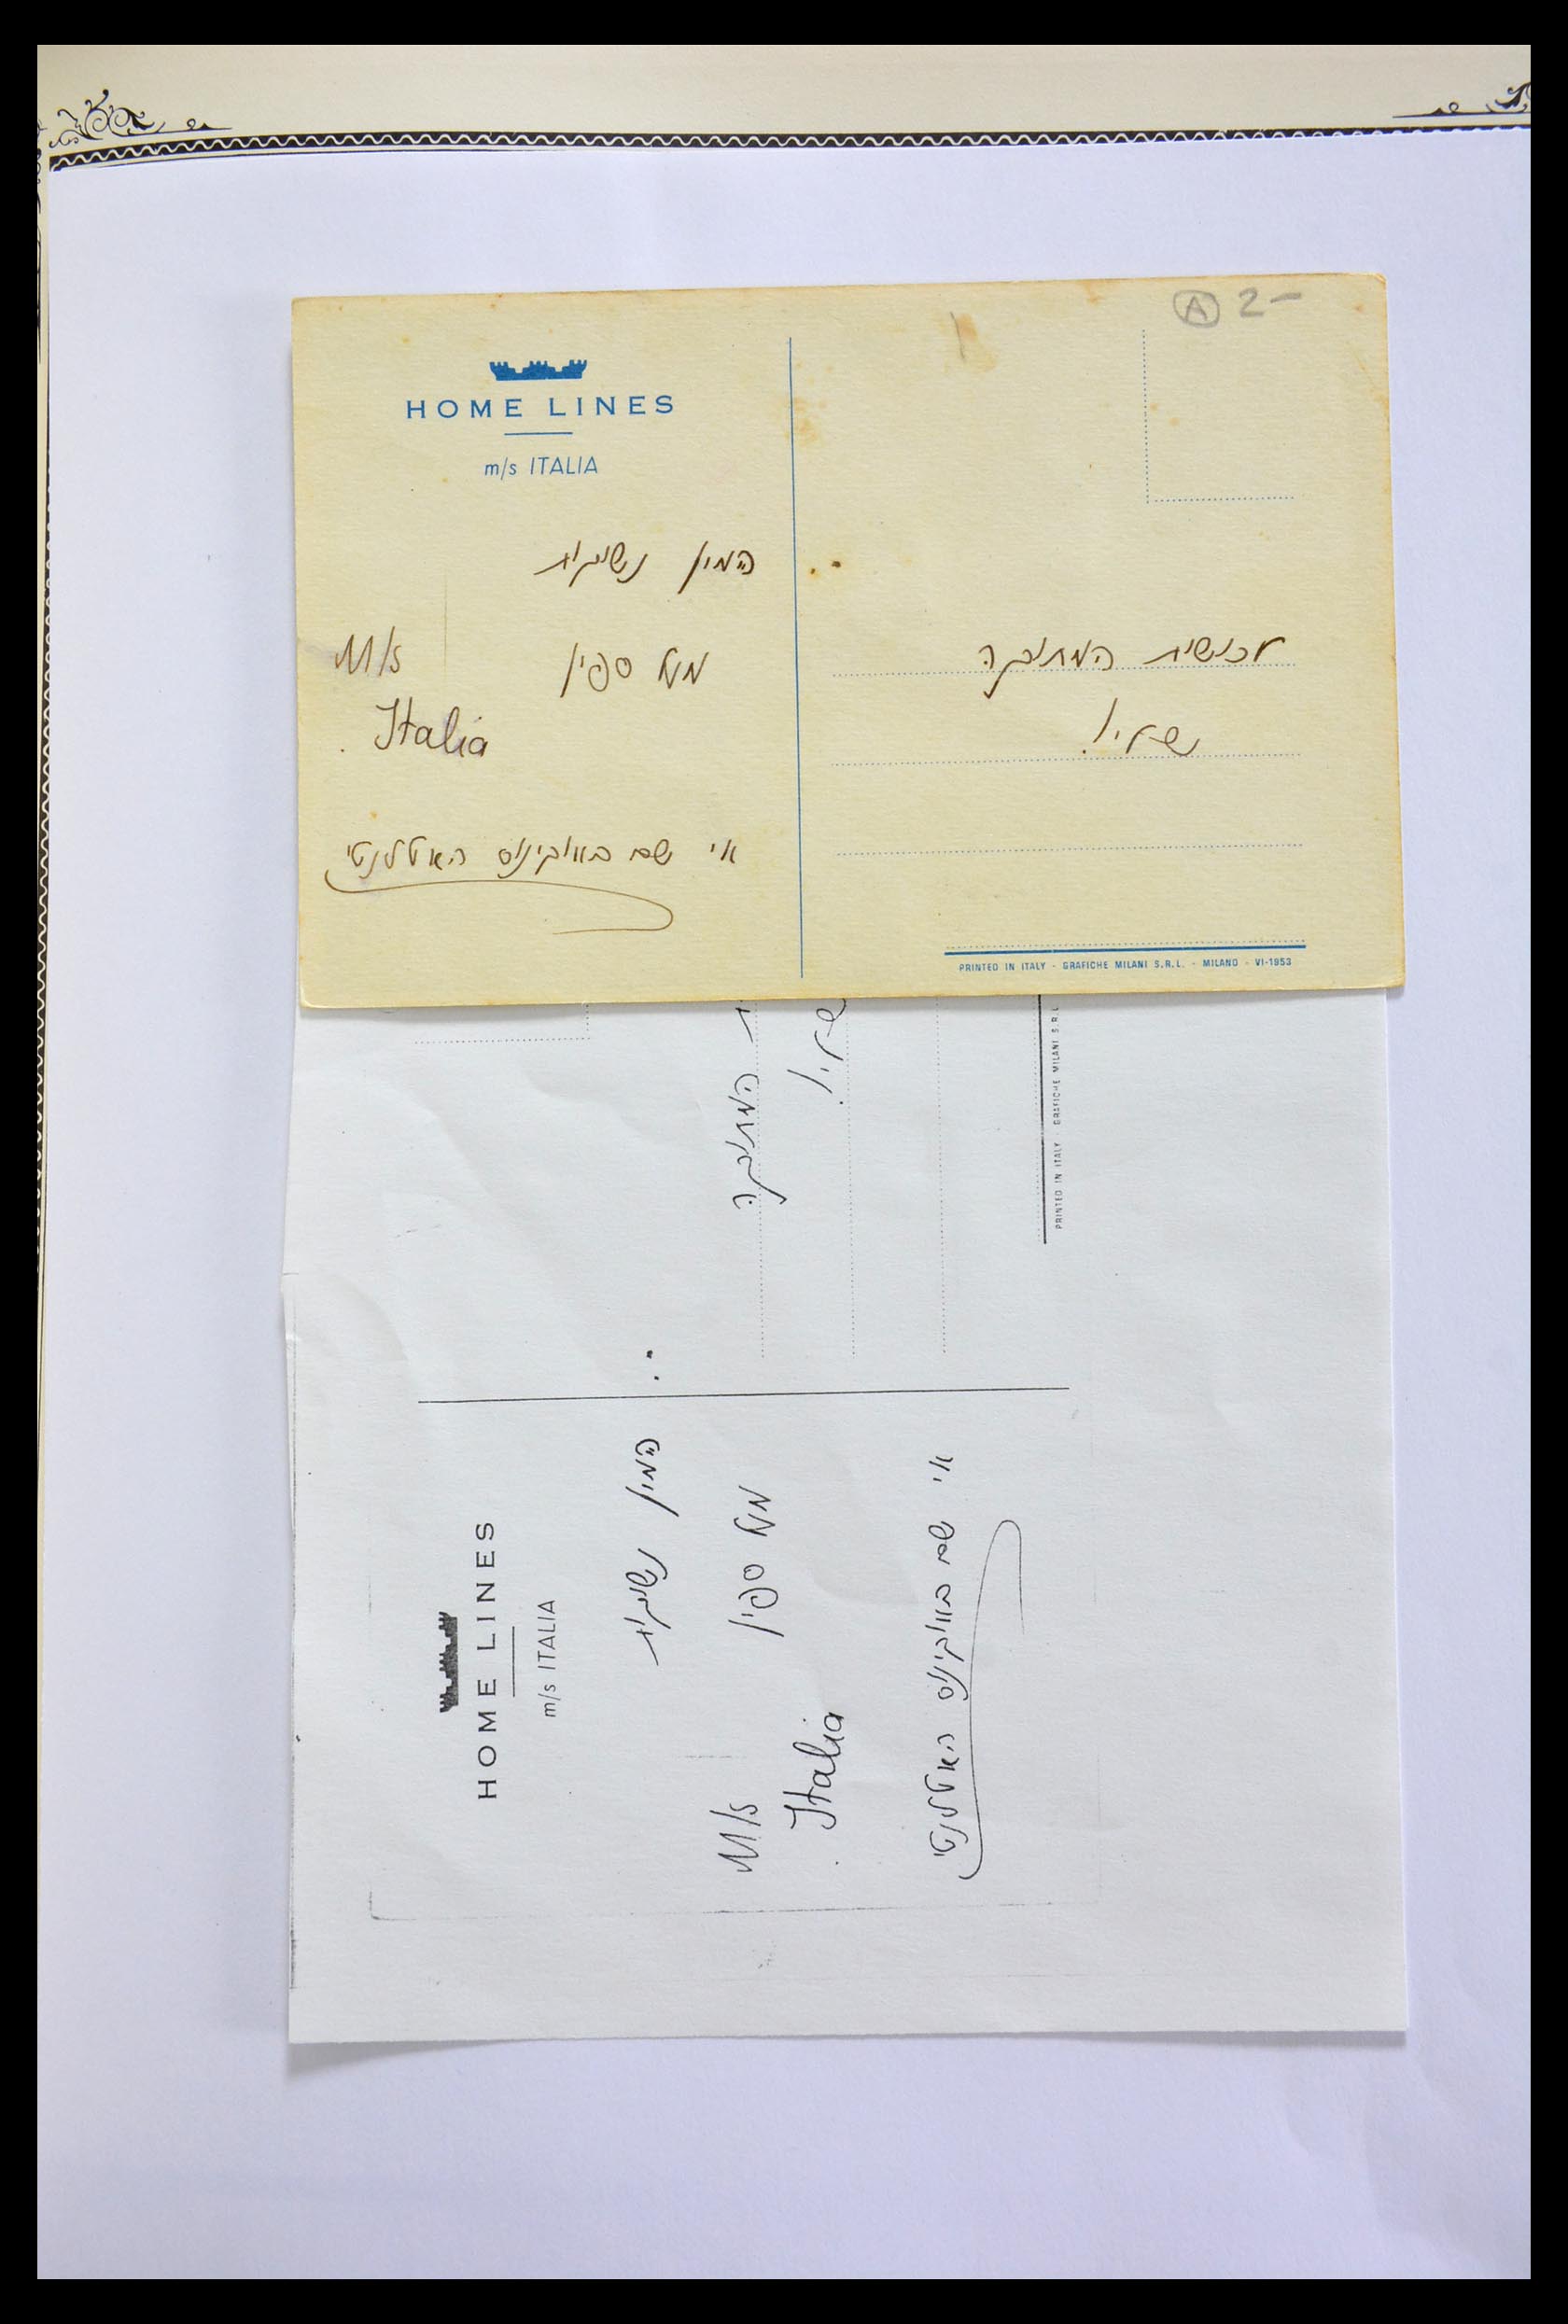 A 2-
HOME LINES
m/s ITALIA
המון נשיקות
מעל ספון
M/s
Italia
אי שם באוקינוס האטלנטי
המתוקה
שלי!
PRINTED IN ITALY - GRAFICHE MILANI S.R.L. - MILANO - VI-1953
המתוקה
שלי!
PRINTED IN ITALY - GRAFICHE MILANI S.R.L
HOME LINES
m/s ITALIA
המון נשיקות
מעל ספון
M/s
Italia
אי שם באוקינוס האטלנטי